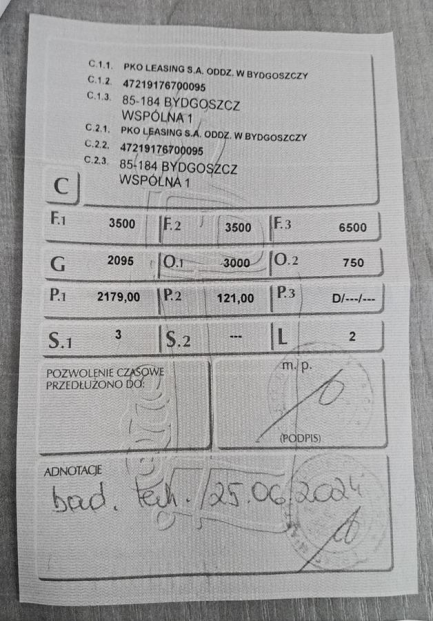 C.1.1. PKO LEASING S.A. ODDZ. W BYDGOSZCZY
C.1.2. 47219176700095
C.1.3. 85-184 BYDGOSZCZ
WSPÓLNA 1
C.2.1. PKO LEASING S.A. ODDZ. W BYDGOSZCZY
C.2.2. 47219176700095
C.2.3. 85-184 BYDGOSZCZ
WSPÓLNA 1
C
F.1 3500 F.2 3500 F.3 6500
G 2095 O.1 3000 O.2 750
P.1 2179,00 P.2 121,00 P.3 D/---/---
S.1 3 S.2 --- L 2
POZWOLENIE CZASOWE
PRZEDŁUŻONO DO:
m. p.
(PODPIS)
ADNOTACJE
bad. tech. 25.06.2024